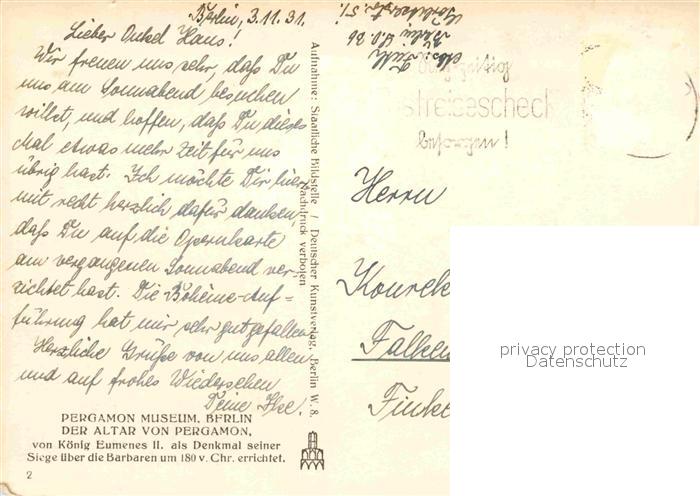 Berlin, 3.11.31.
Lieber Onkel Hans!
Wir freuen uns sehr, daß Du
uns am Sonnabend besuchen
willst, und hoffen, daß Du dieses
Mal etwas mehr Zeit für uns
übrig hast. Ich möchte Dir hier
mit recht herzlich dafür danken,
daß Du auf die Opernkarte
am vergangenen Sonnabend ver-
zichtet hast. Die Bohème-Auf=
führung hat mir sehr gut gefallen.
Herzliche Grüße von uns allen
und auf frohes Wiedersehen
Deine Ilse.
PERGAMON MUSEUM, BERLIN
DER ALTAR VON PERGAMON,
von König Eumenes II. als Denkmal seiner
Siege über die Barbaren um 180 v. Chr. errichtet.
2
Aufnahme: Staatliche Bildstelle / Deutscher Kunstverlag, Berlin W. 8.
Nachdruck verboten
Berlin S.O. 36
streisescheck
besorgen!
Herrn
Falken
privacy protection
Datenschutz